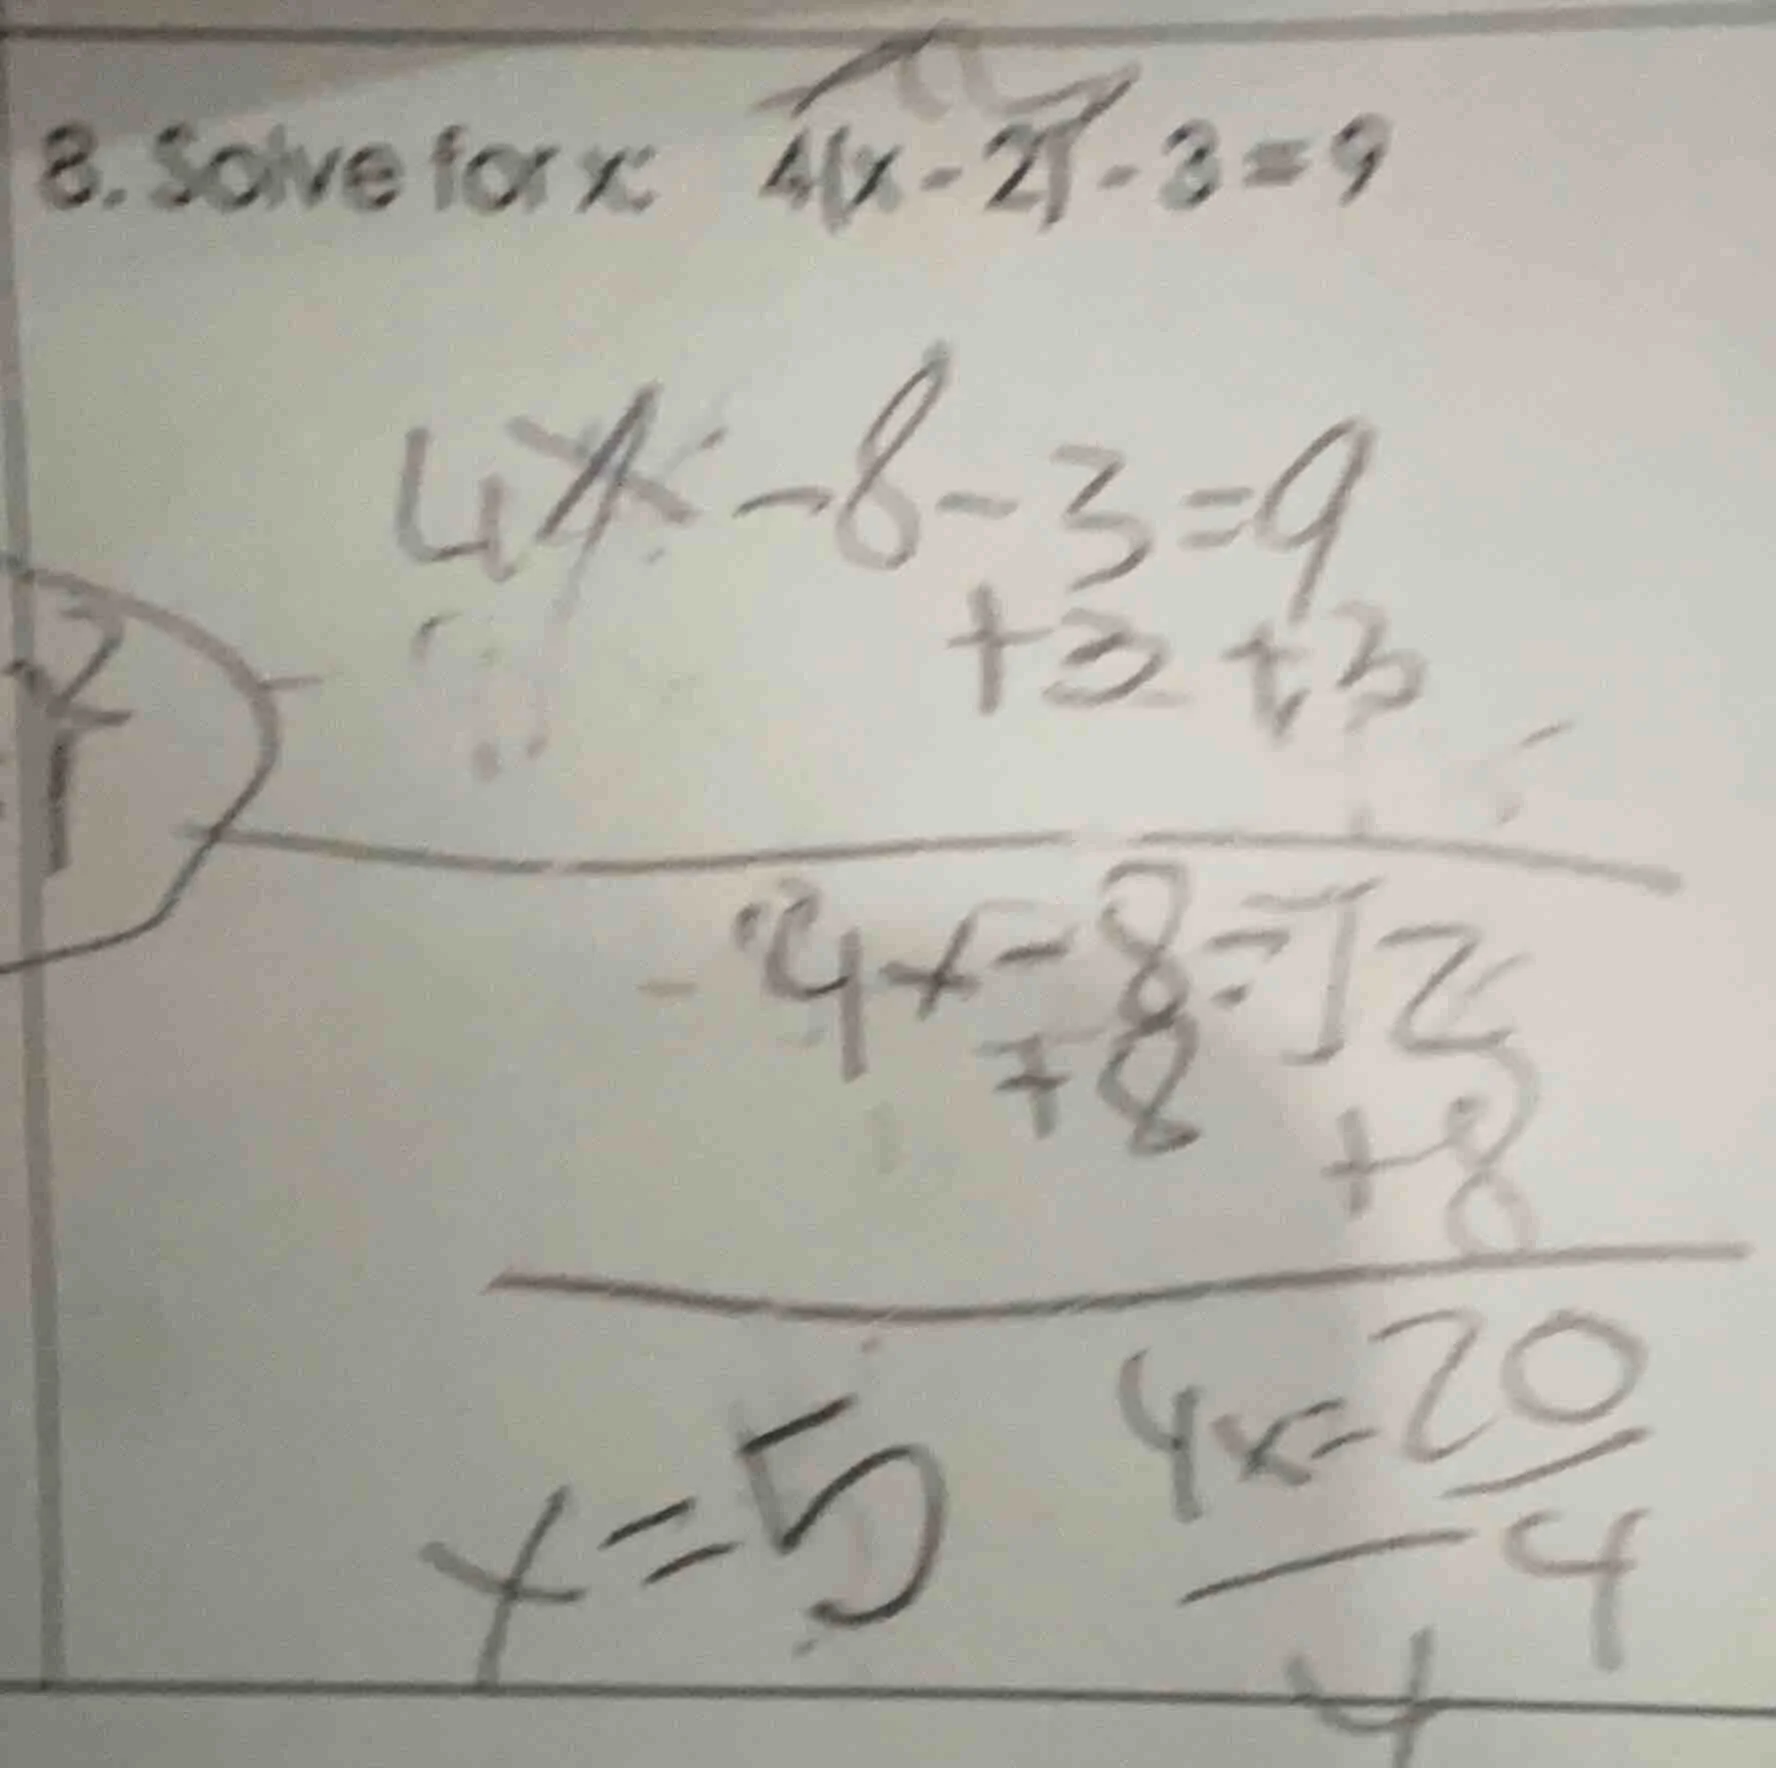 8. Solve for x: 4(x - 2) - 3 = 9
4x - 8 - 3 = 9
+3 +3
4x - 8 = 12
+8 +8
4x = 20
4 4
x = 5